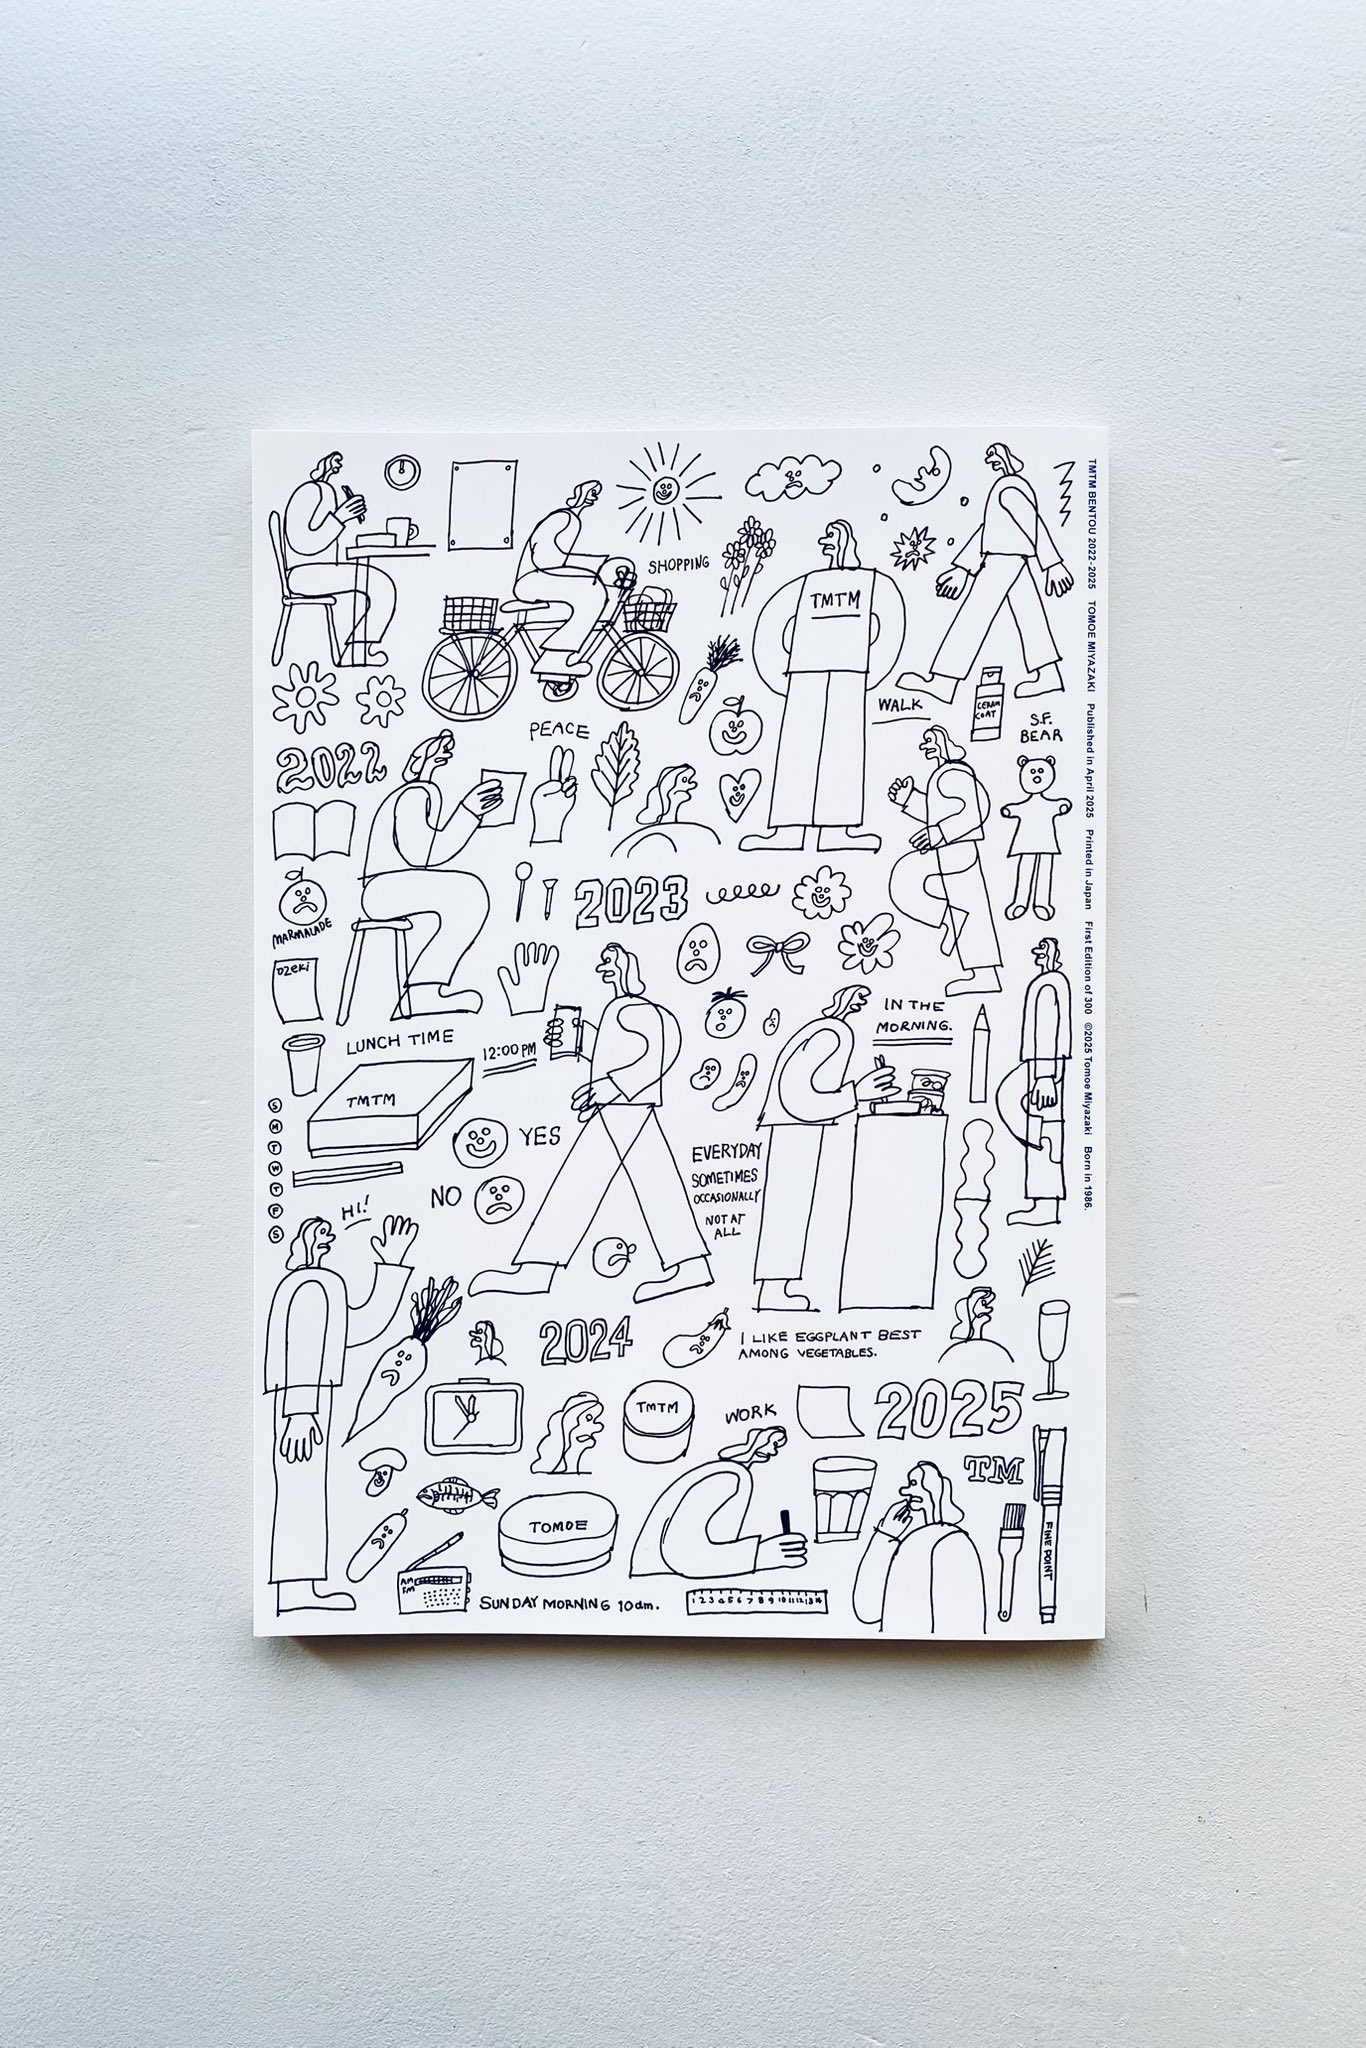 SHOPPING
TMTM
WALK
CERAM
COAT
S.F.
BEAR
PEACE
2022
2023
MARMALADE
OZEKI
LUNCH TIME
12:00PM
IN THE
MORNING.
TMTM
S
M
T
W
T
F
S
YES
NO
HI!
EVERYDAY
SOMETIMES
OCCASIONALLY
NOT AT
ALL
2024
I LIKE EGGPLANT BEST
AMONG VEGETABLES.
2025
TMTM
WORK
TM
FINE POINT
TOMOE
AM
FM
SUNDAY MORNING 10am.
1 2 3 4 5 6 7 8 9 10 11 12 13 14
TMTM BENTOU 2022-2025 TOMOE MIYAZAKI Published in April 2025 Printed in Japan First Edition of 300 ©2025 Tomoe Miyazaki Born in 1986.